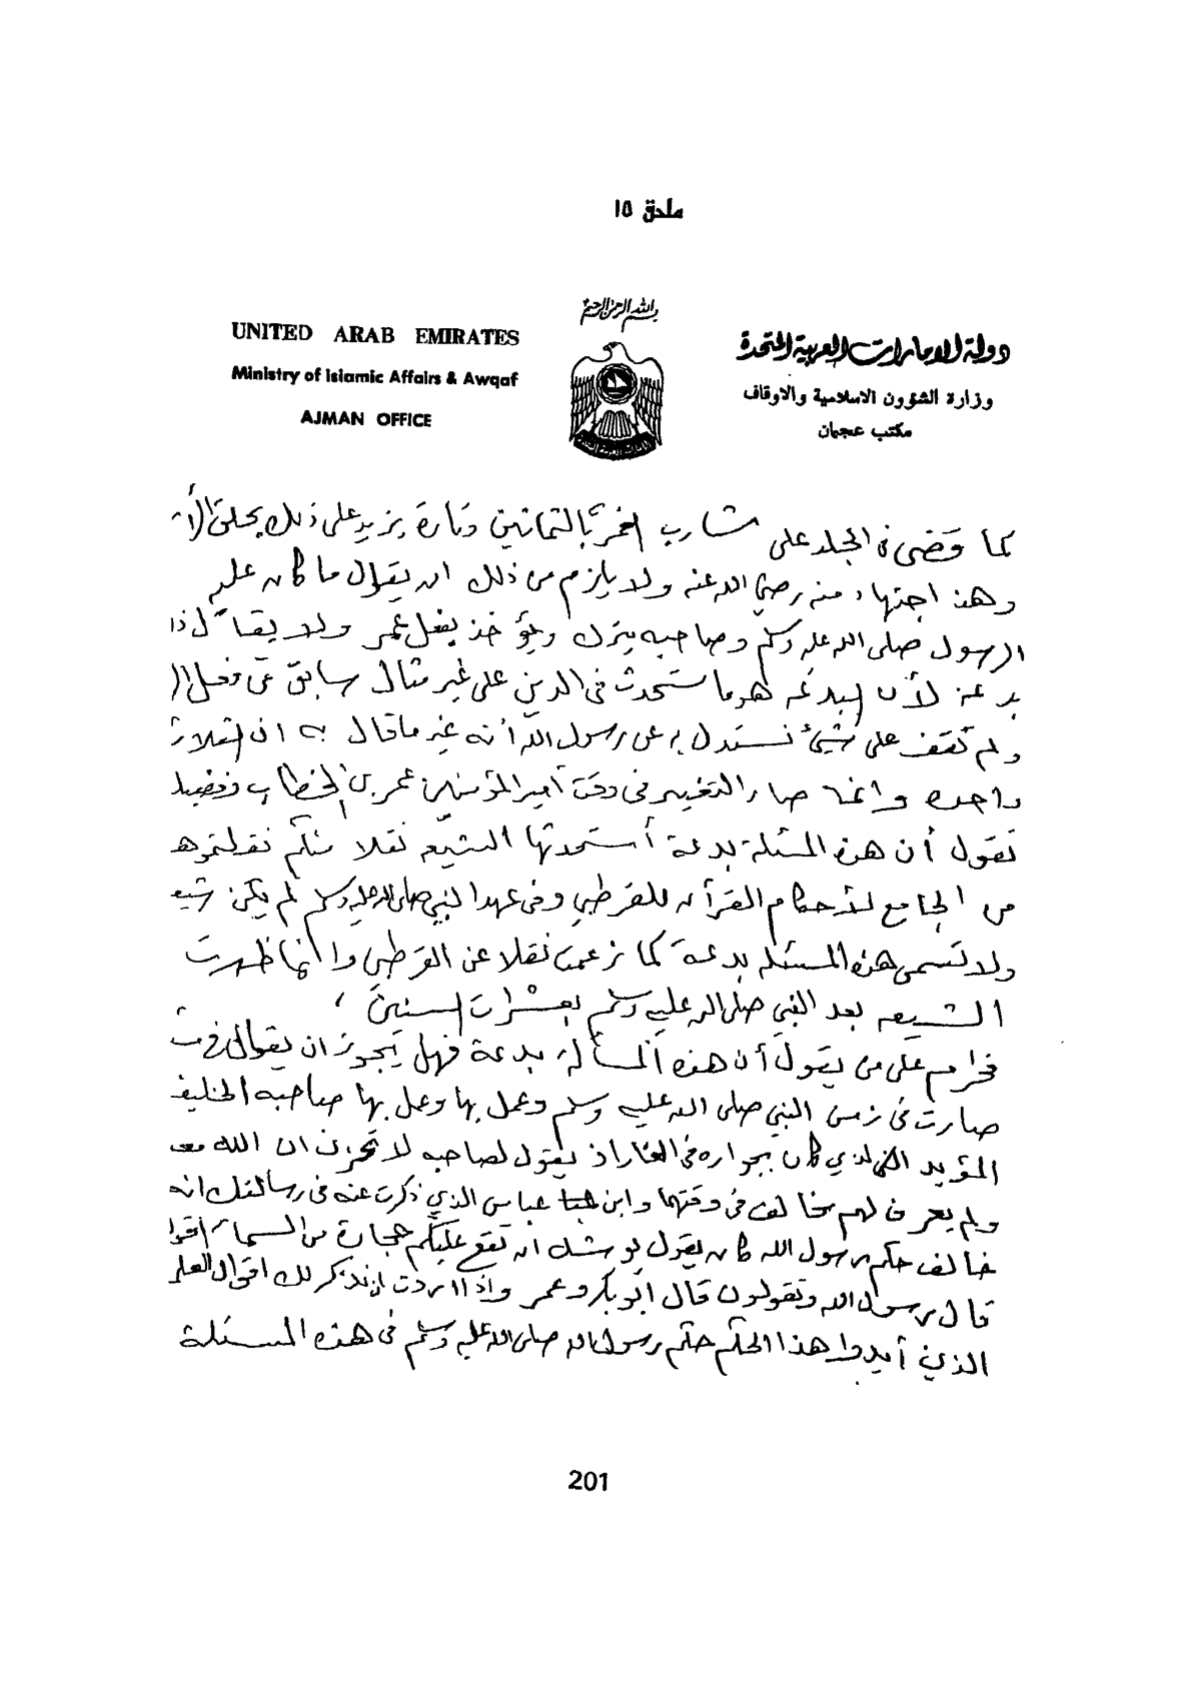 ملحق ١٥
بسم الله الرحمن الرحيم
UNITED ARAB EMIRATES
Ministry of Islamic Affairs & Awqaf
AJMAN OFFICE
دولة الامارات العربية المتحدة
وزارة الشؤون الاسلامية والاوقاف
مكتب عجمان
كما قضى في الجلد على شارب الخمر بالثمانين وتارة يزيد على ذلك بحلق
وهذا اجتهاد منه رضي الله عنه ولا يلزم من ذلك ان يقول ما كان عليه
الرسول صلى الله عليه وسلم وصاحبه يترك ويؤخذ بفعل عمر ولا يقال
بدعة لأن البدعة هو ما ستحدث في الدين على غير مثال سابق
ولم نقف على شيئ نستدل به عن رسول الله أنه غير ما قال به ان الثلاث
واحده وانما صار التغيير في وقت أمير المؤمنين عمر بن الخطاب
تقول أن هذه المسئلة بدعة أستحدثها الشيعه نقلا منكم نقلتموه
من الجامع لأحكام القرآن للقرطبي وفي عهد النبي صلى الله عليه وسلم لم يكن
ولا تسمى هذه المسئله بدعة كما زعمت نقلا عن القرطبي وانما ظهرت
الشيعه بعد النبي صلى الله عليه وسلم بعشرات السنين
فحرام على من يقول أن هذه المسألة بدعة فهل يجوز ان يقول
صارت في زمن النبي صلى الله عليه وسلم وعمل بها وعمل بها صاحبه الخليفه
المؤيد الذي كان بجواره في الغار اذ يقول لصاحبه لا تحزن ان الله معنا
ولم يعرف لهم مخالف في وقتهما وابن عباس الذي ذكرت عنه في رسالتك انه
خالف حكم رسول الله كان يقول يوشك ان تقع عليكم حجارة من السماء اقول
قال رسول الله وتقولون قال ابو بكر وعمر واذا اردت ان نذكر لك اقوال العلماء
الذين أيدوا هذا الحكم حكم رسول الله صلى الله عليه وسلم في هذه المسئلة
201